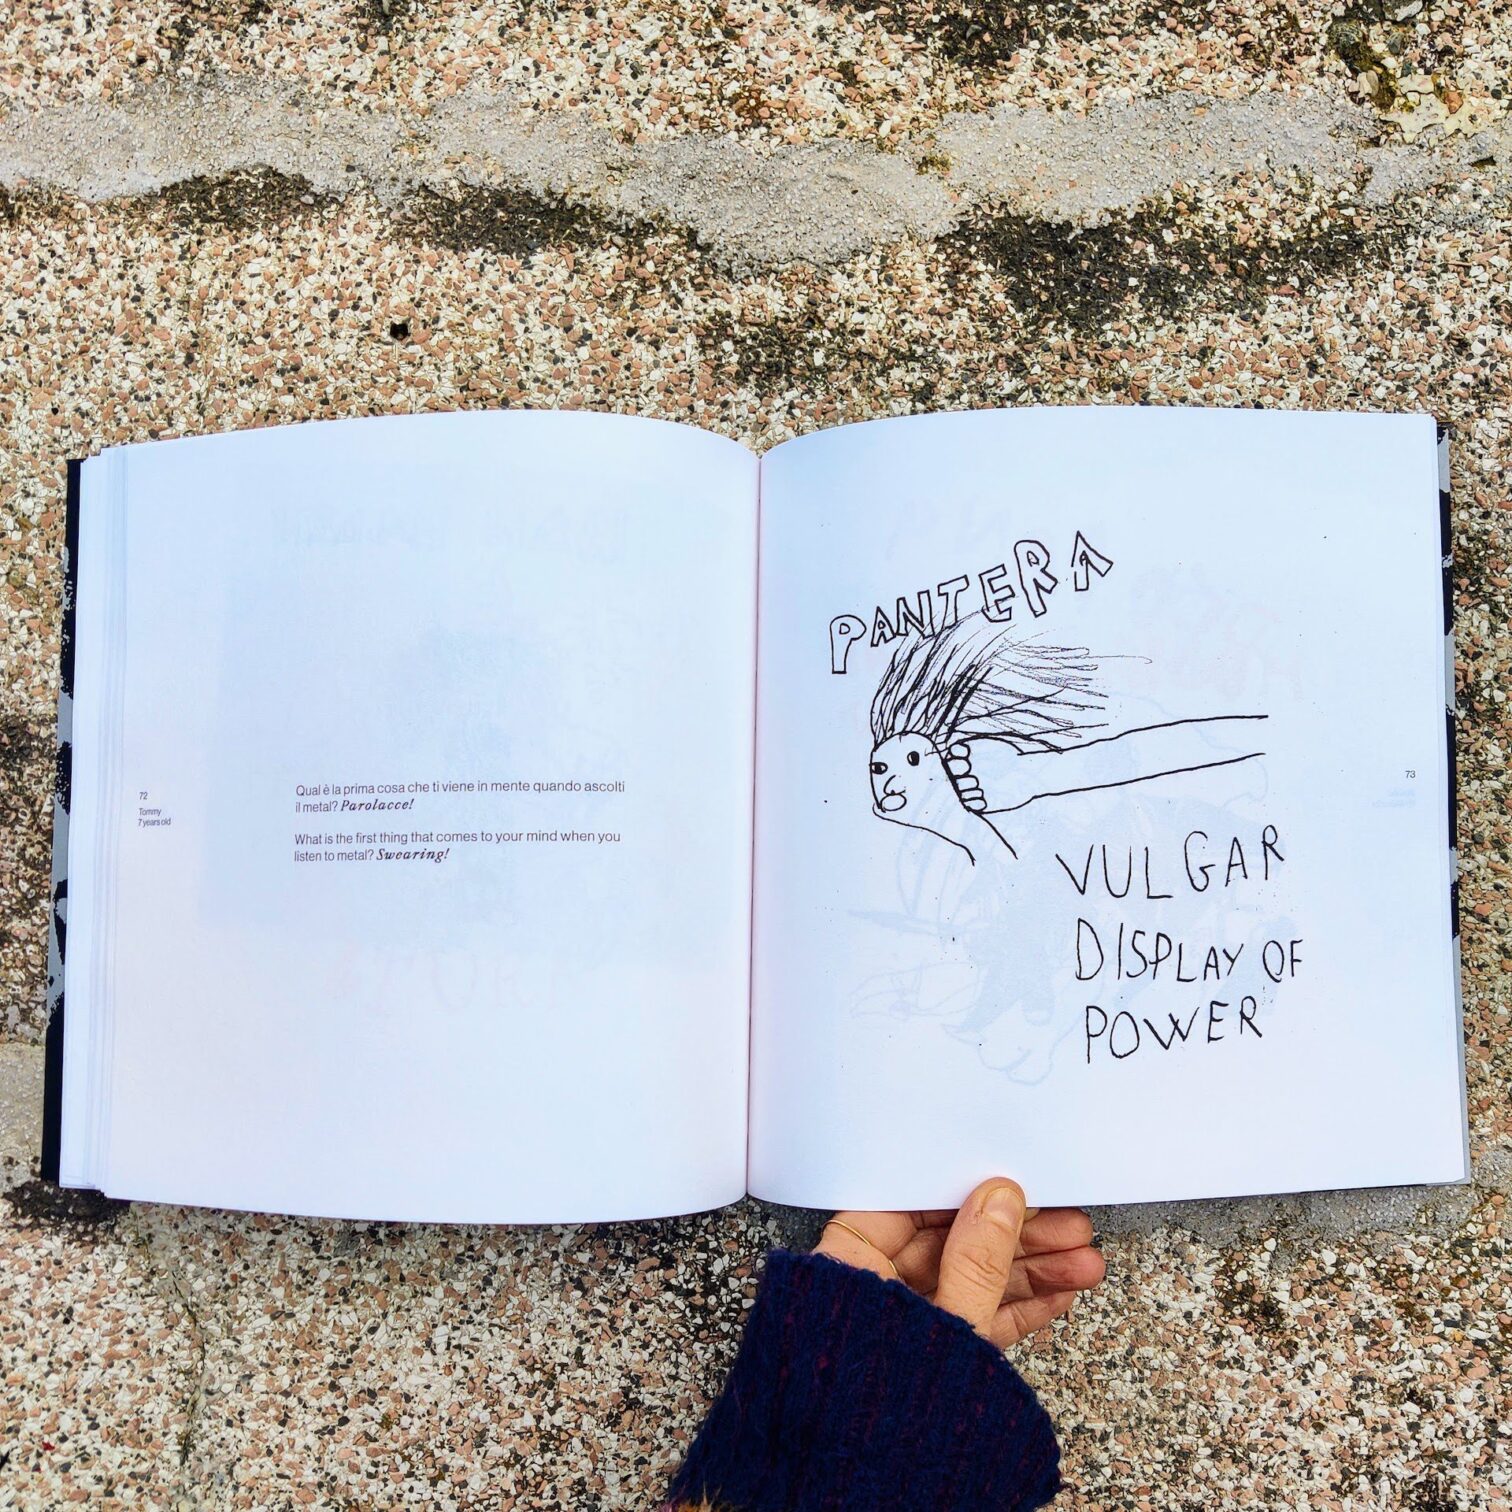 72
Tommy
7 years old
Qual è la prima cosa che ti viene in mente quando ascolti
il metal? Parolacce!
What is the first thing that comes to your mind when you
listen to metal? Swearing!
PANTERA
VULGAR
DISPLAY OF
POWER
73